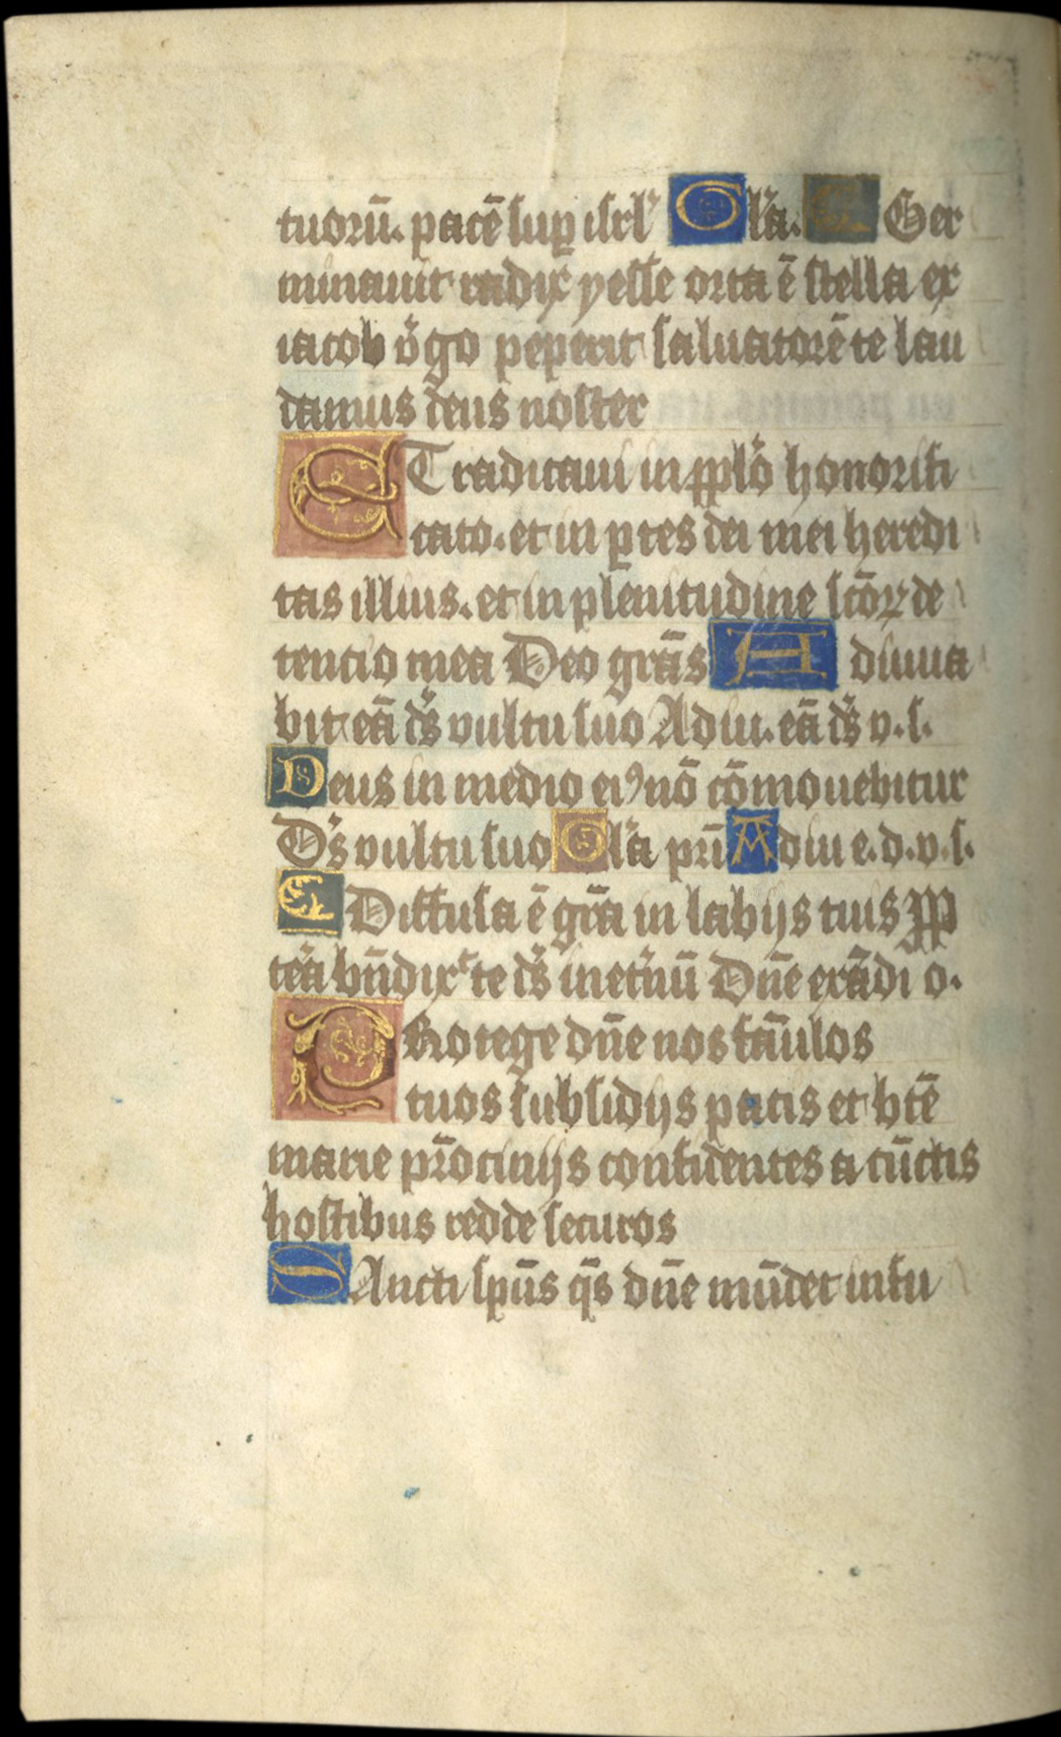 tuorū. pacē suꝑ isrl' Gl'a. C Ger
minauit radix yesse orta ē stella ex
iacob v̓go peperit saluatorē te lau
damus deus noster
ET radicaui in pp̄lo honorifi
cato. et in ꝑtes dei mei heredi
tas illius. et in plenitudine sc̄oꝝ de
tentio mea Deo grās Adiuua
bit eā d̓s vultu suo Adiu. eā d̓s v. s.
Deus in medio eiꝰ nō cōmouebitur
D̓s vultu suo Gl'a pri̅ Adiu e. d. v. s.
C Diffusa ē gr̄a in labijs tuis Pp
tēa bn̄dixͭ te d̓s inet̓nū Dn̄e exādi o.
PRotege dn̄e nos fāulos
tuos subsidijs pacis et bt̄e
marie pr̄ocinijs confidentes a cūctis
hostibus redde securos
SAncti sp̄us q̄s dn̄e mūdet infu